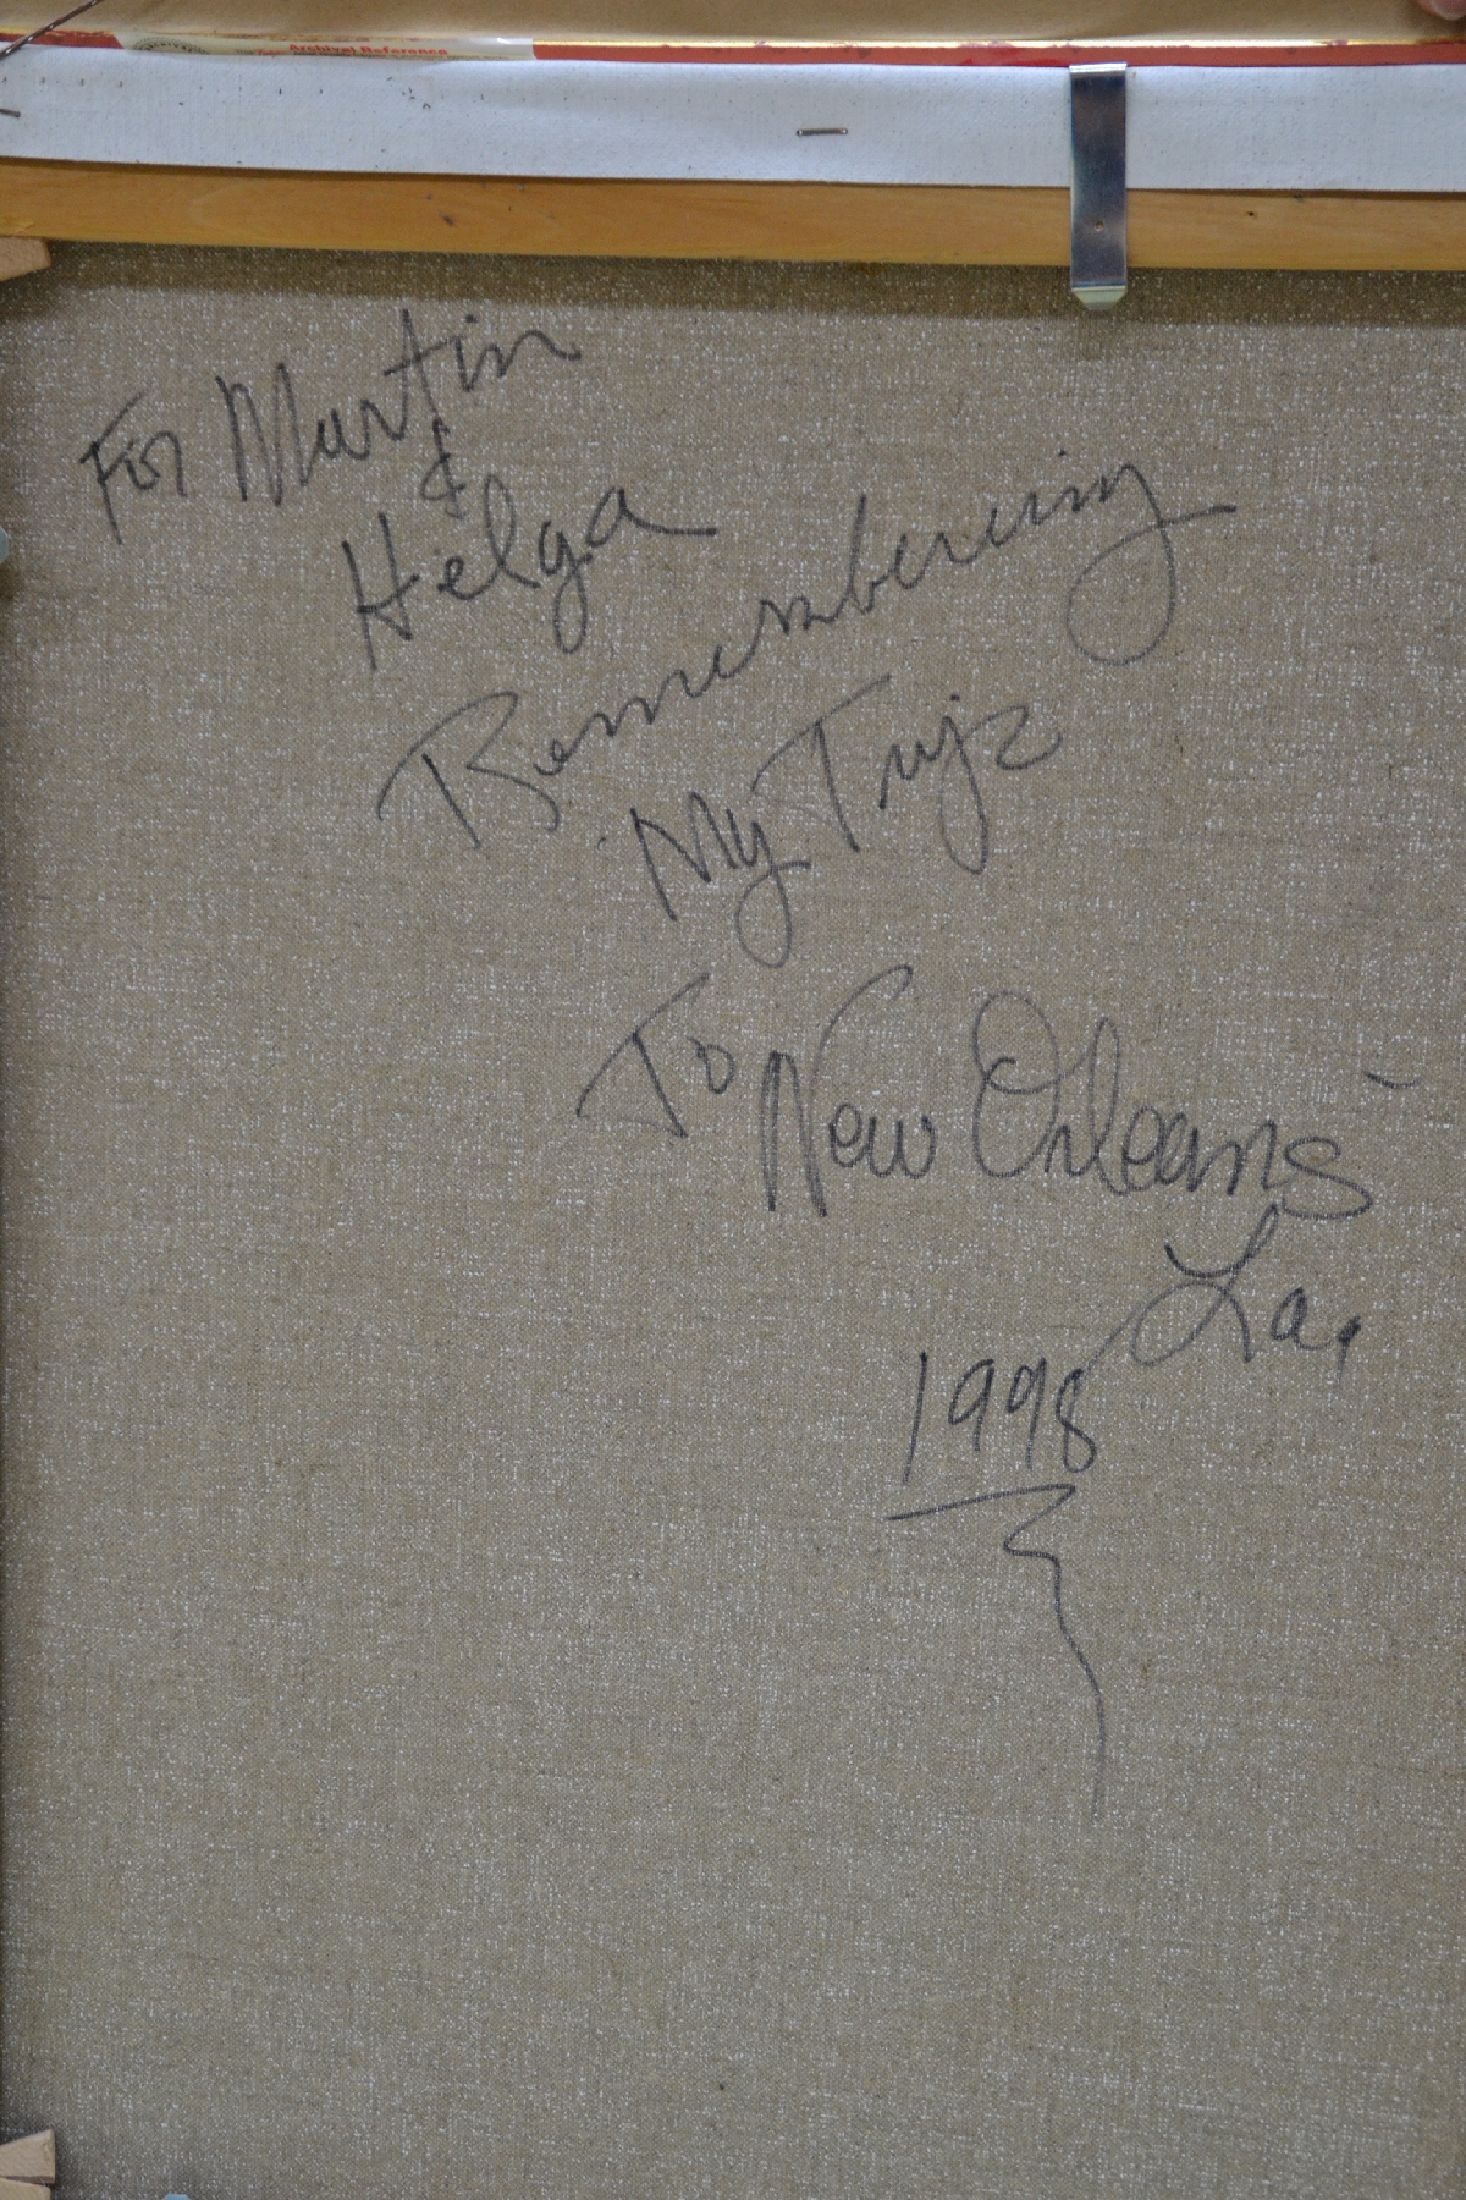 Archival Reference
For Martin
&
Helga
Remembering
My Trip
To New Orleans
La,
1998